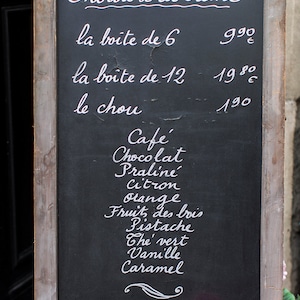 la boîte de 6 9,90€
la boîte de 12 19,80€
le chou 1,90
Café
Chocolat
Praliné
Citron
Orange
Fruits des bois
Pistache
Thé vert
Vanille
Caramel